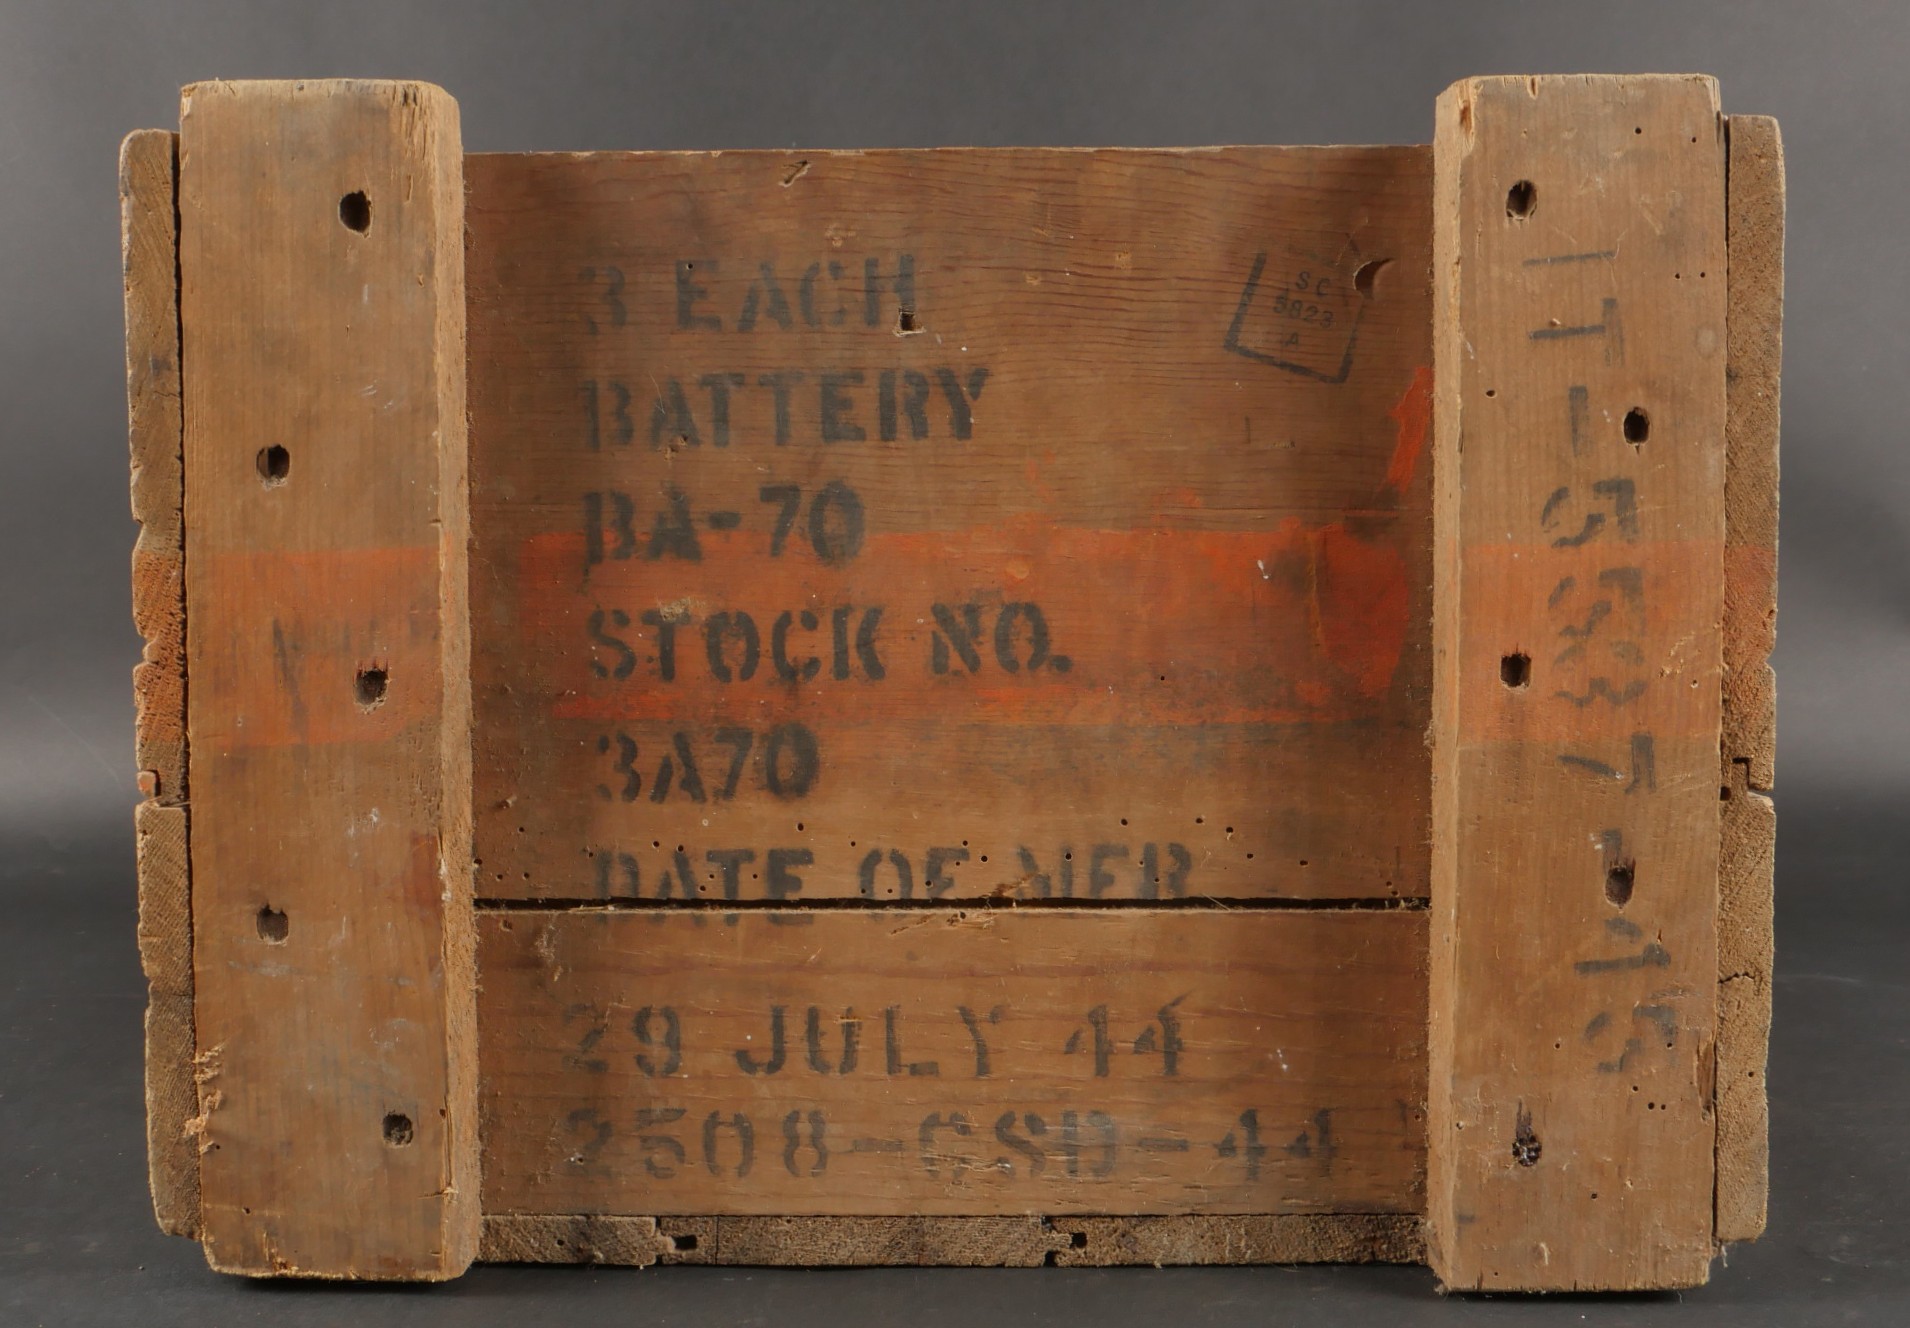 3 EACH
BATTERY
BA-70
STOCK NO.
3A70
DATE OF MFR
29 JULY 44
2508-GSD-44
SC
5823
A